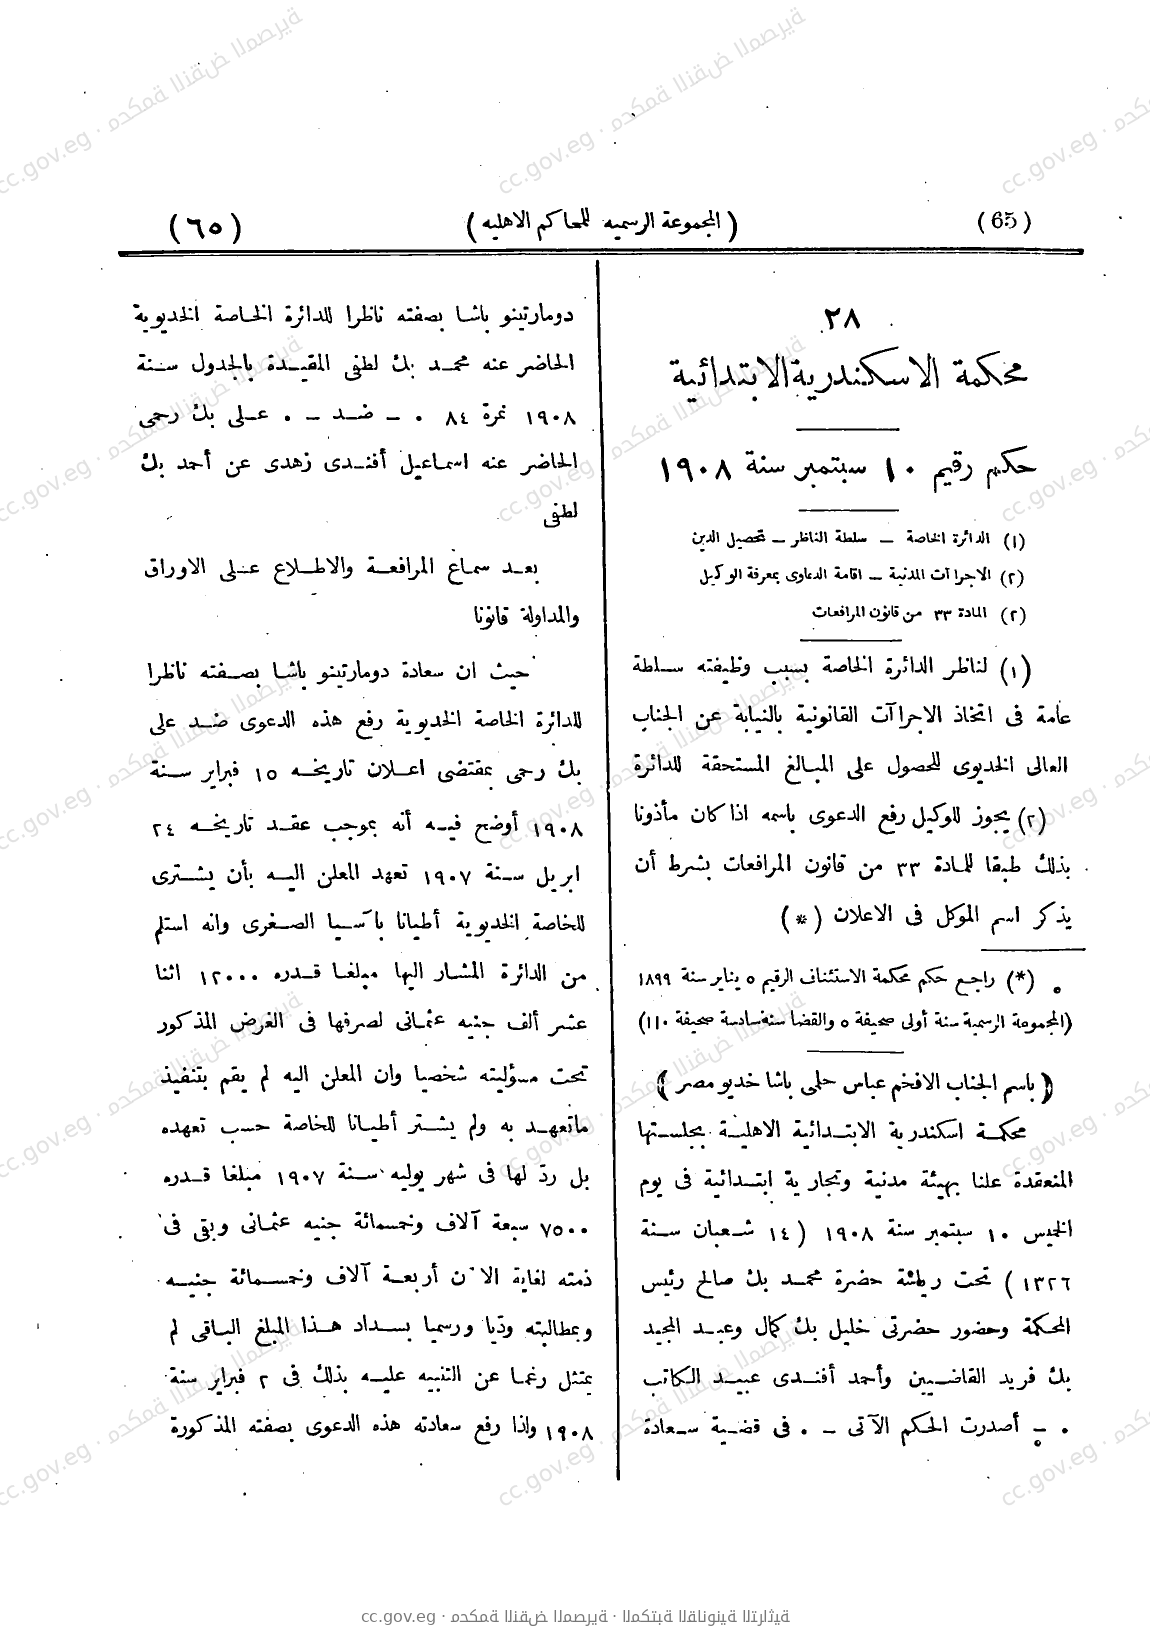 (65) (المجموعة الرسميه للمحاكم الاهليه) (٦٥)
٢٨
محكمة الاسكندرية الابتدائية
حكم رقيم ١٠ سبتمبر سنة ١٩٠٨
(١) الدائرة الخاصة — سلطة الناظر — تحصيل الدين
(٢) الاجراآت المدنية — اقامة الدعاوى بمعرفة الوكيل
(٢) المادة ٣٣ من قانون المرافعات
(١) لناظر الدائرة الخاصة بسبب وظيفته سلطة
عامة فى اتخاذ الاجراآت القانونية بالنيابة عن الجناب
العالى الخديوى للحصول على المبالغ المستحقة للدائرة
(٢) يجوز للوكيل رفع الدعوى باسمه اذا كان مأذونا
بذلك طبقا للمادة ٣٣ من قانون المرافعات بشرط أن
يذكر اسم الموكل فى الاعلان (*)
(*) راجع حكم محكمة الاستئناف الرقيم ٥ يناير سنة ١٨٩٩
(المجموعة الرسمية سنة أولى صحيفة ٥ والقضا سنة سادسة صحيفة ١١٠)
﴿ باسم الجناب الافخم عباس حلمى باشا خديو مصر ﴾
محكمة اسكندرية الابتدائية الاهلية بجلستها
المنعقدة علنا بهيئة مدنية وتجارية ابتدائية فى يوم
الخميس ١٠ سبتمبر سنة ١٩٠٨ (١٤ شعبان سنة
١٣٢٦) تحت رياسة حضرة محمد بك صالح رئيس
المحكمة وحضور حضرتى خليل بك كمال وعبد المجيد
بك فريد القاضيين وأحمد أفندى عبيد الكاتب
. — أصدرت الحكم الآتى — . فى قضية سعادة
دومارتينو باشا بصفته ناظرا للدائرة الخاصة الخديوية
الحاضر عنه محمد بك لطفى المقيدة بالجدول سنة
١٩٠٨ نمرة ٨٤ . — ضد — . على بك رحمى
الحاضر عنه اسماعيل أفندى زهدى عن أحمد بك
لطفى
بعد سماع المرافعة والاطلاع على الاوراق
والمداولة قانونا
حيث ان سعادة دومارتينو باشا بصفته ناظرا
للدائرة الخاصة الخديوية رفع هذه الدعوى ضد على
بك رحمى بمقتضى اعلان تاريخه ١٥ فبراير سنة
١٩٠٨ أوضح فيه أنه بموجب عقد تاريخه ٢٤
ابريل سنة ١٩٠٧ تعهد المعلن اليه بأن يشترى
للخاصة الخديوية أطيانا بآسيا الصغرى وانه استلم
من الدائرة المشار اليها مبلغا قدره ١٢٠٠٠ اثنا
عشر ألف جنيه عثمانى لصرفها فى الغرض المذكور
تحت مسؤليته شخصيا وان المعلن اليه لم يقم بتنفيذ
ماتعهد به ولم يشتر أطيانا للخاصة حسب تعهده
بل ردّ لها فى شهر يوليه سنة ١٩٠٧ مبلغا قدره
٧٥٠٠ سبعة آلاف وخمسمائة جنيه عثمانى وبقى فى
ذمته لغاية الآن أربعة آلاف وخمسمائة جنيه
وبمطالبته وديّا ورسميا بسداد هذا المبلغ الباقى لم
يمتثل رغما عن التنبيه عليه بذلك فى ٢ فبراير سنة
١٩٠٨ ولذا رفع سعادته هذه الدعوى بصفته المذكورة
cc.gov.eg · محكمة النقض المصرية · المكتبة القانونية التراثية